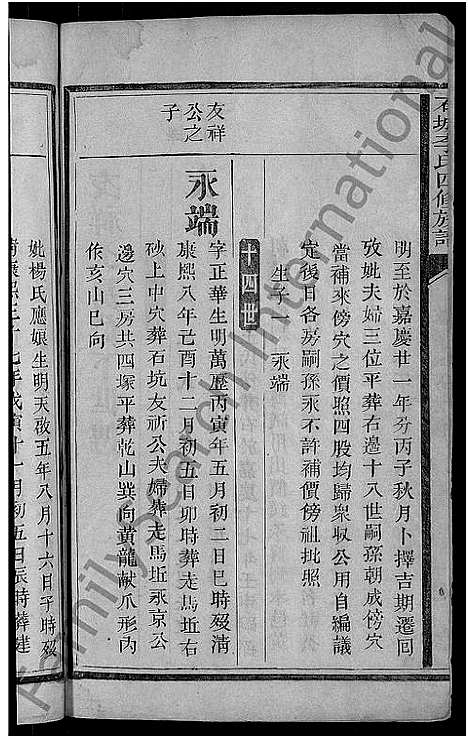 石城李氏四修族譜
明至於嘉慶廿一年分丙子秋月卜擇吉期遷回
攷妣夫婦三位平葬右邊十八世嗣孫朝成傍穴
當補來傍穴之價照四股均歸衆収公用自編議
定後日各房嗣孫永不許補價傍祖批照
生子一 永端
十四世
友祥公之子
永端
字正華生明萬歷丙寅年五月初二日巳時歿淸
康熙八年己酉十二月初五日卯時葬走馬坵右
砂上中穴葬石坑友祈公夫婦葬走馬坵永京公
邊穴三房共四塚平葬乾山巽向黃龍獻爪形內
依亥山巳向
妣楊氏應娘生明天啟五年八月十六日子時歿
七年戊寅十一月初五日辰時葬建
FamilySearch International